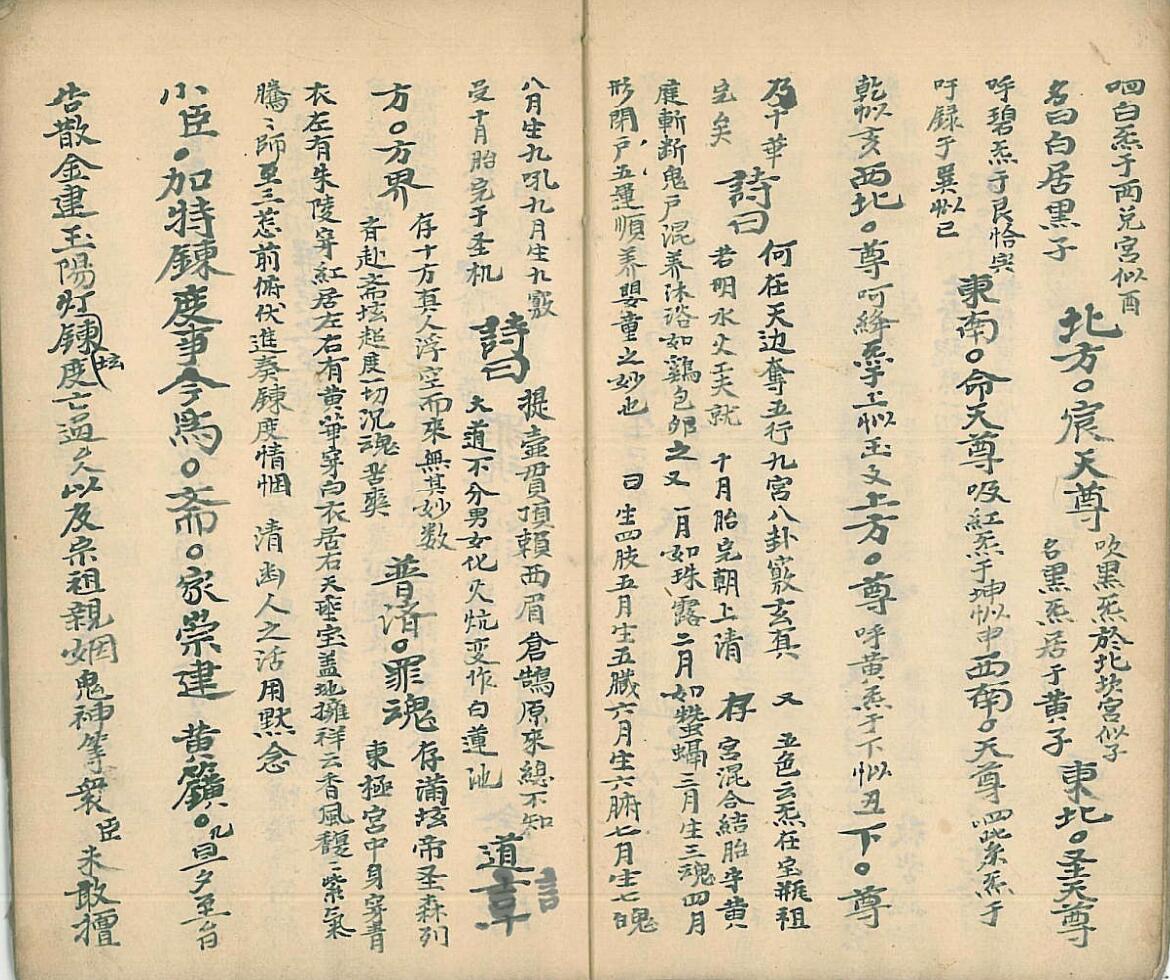 呬白炁于西兌宮似酉
名曰白居黑子
北方。宸天尊
吹黑炁於北坎宮似子
名黑炁居于黃子
東北。圣天尊
呼碧炁于艮恰與
吁録于巽似巳
東南。命天尊吸紅炁于坤似申西南。天尊呬紫炁于
乾似亥西北。尊呵絳炁于上似玉文上方。尊呼黃炁于下似丑下。尊
乃中華
宝矣
詩曰
何在天边奪五行九宮八卦竅玄真
若明水火工夫就
十月胎完朝上清
又
五色云炁在宝瓶祖
存
宮混合結胎孛黃
庭斬断鬼戸混养沐浴如鷄包卵之又一月如珠露二月如 三月生三魂四月
形閉戸五運順养嬰童之妙也
曰生四肢五月生五臟六月生六腑七月生七魄
八月生九吼九月生九竅
受十月胎完于圣机
詩曰
提壺貫頂賴西眉倉鵠原來總不知
大道不分男女化火炕变作白蓮池
道言
方。方界
存十方真人浮空而來無其妙数
音赴斋坛超度一切沉魂苦爽
普済。罪魂
存滿坛帝圣森列
東極宮中身穿青
衣左有朱陵穿紅居左右有黃華穿白衣居右天垂宝盖地擁祥云香風馥〻紫氣
騰〻師至三惹前俯伏進奏錬度情悃
清幽人之活用默念
小臣。加特錬度事今為。斋。家崇建
黃籙。九旦夕至台
告散金建玉陽灯錬度坛亡過久以及宗祖親姻鬼神等衆臣未敢擅